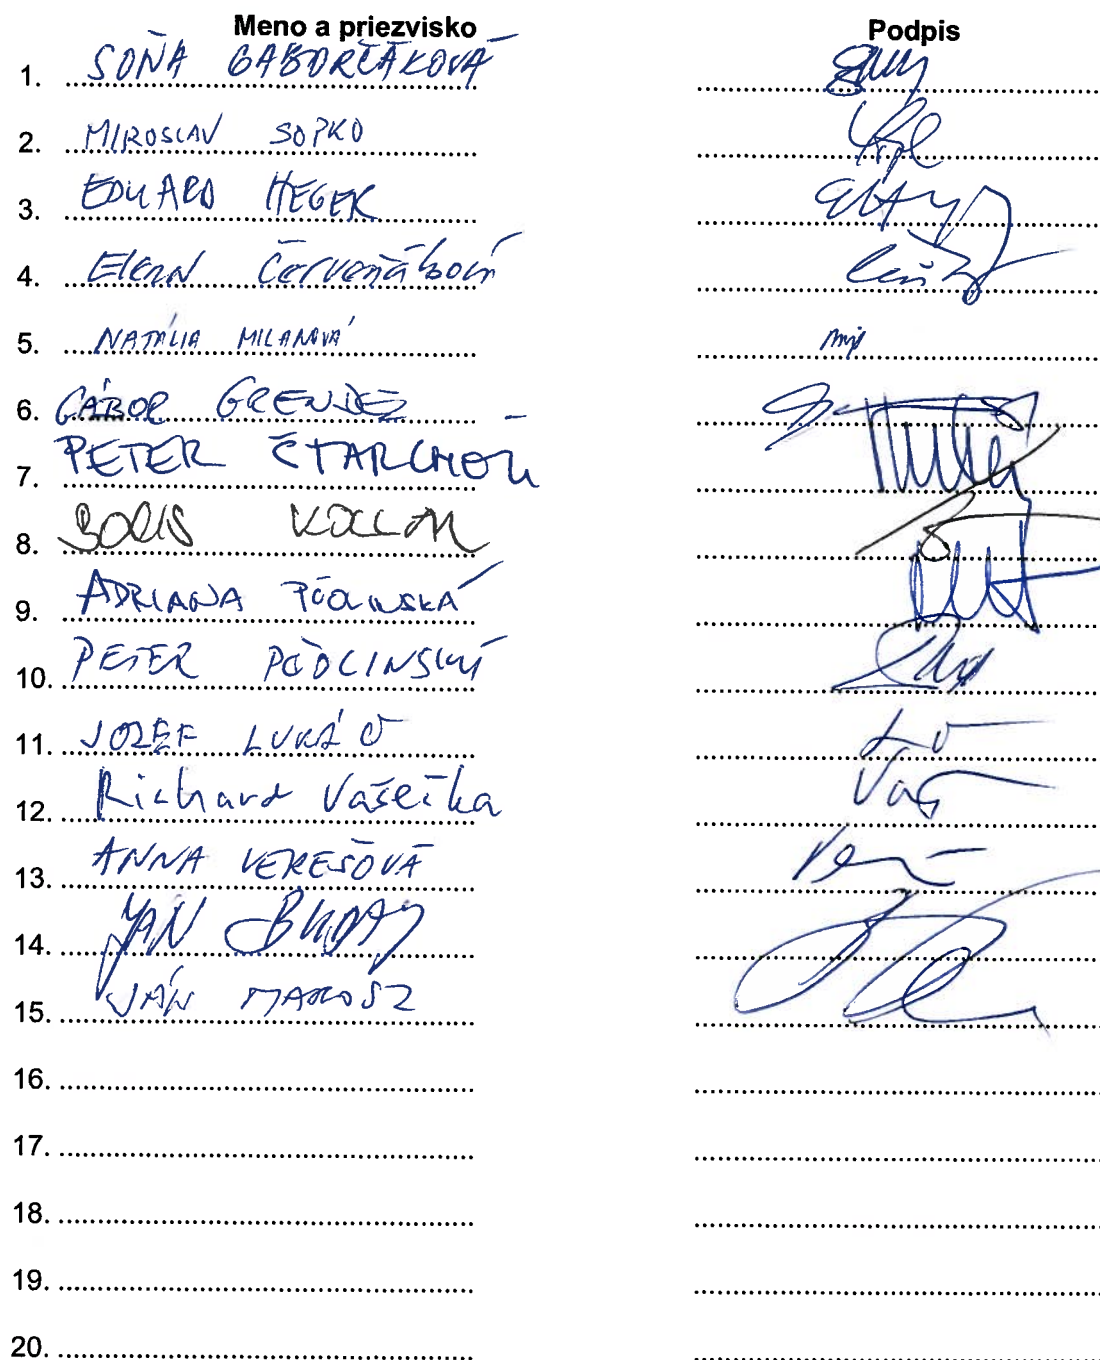 Meno a priezvisko Podpis
1. SOŇA GABORČÁKOVÁ
2. MIROSLAV SOPKO
3. EDUARD HEGER
4. Elena Červeňáková
5. NATÁLIA MILANOVÁ
6. GÁBOR GRENDEL
7. PETER
8. BORIS KOLLÁR
9. ADRIANA PČOLINSKÁ
10. PETER PČOLINSKÝ
11. JOZEF LUKÁČ
12. Richard Vašečka
13. ANNA VEREŠOVÁ
14. JÁN BUDAY
15. JÁN MAROSZ
16.
17.
18.
19.
20.